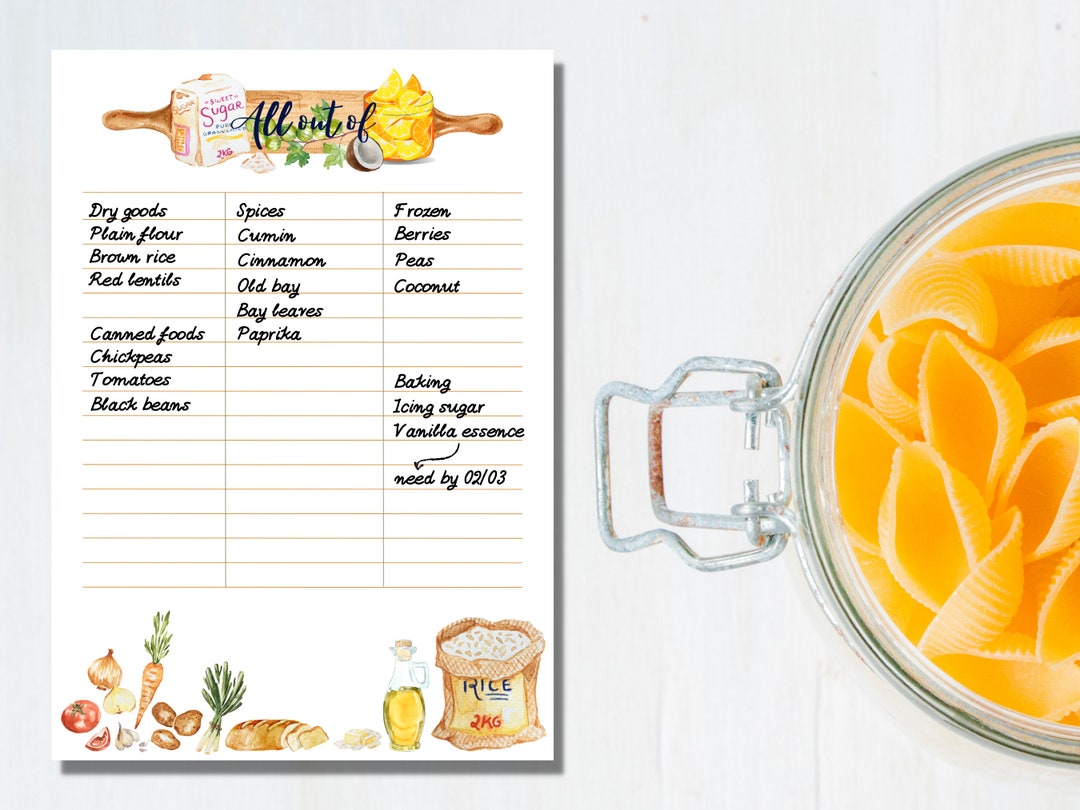 SWEET
Sugar
2KG
All out of
Dry goods
Plain flour
Brown rice
Red lentils
Canned foods
Chickpeas
Tomatoes
Black beans
Spices
Cumin
Cinnamon
Old bay
Bay leaves
Paprika
Frozen
Berries
Peas
Coconut
Baking
Icing sugar
Vanilla essence
need by 02/03
RICE
2KG